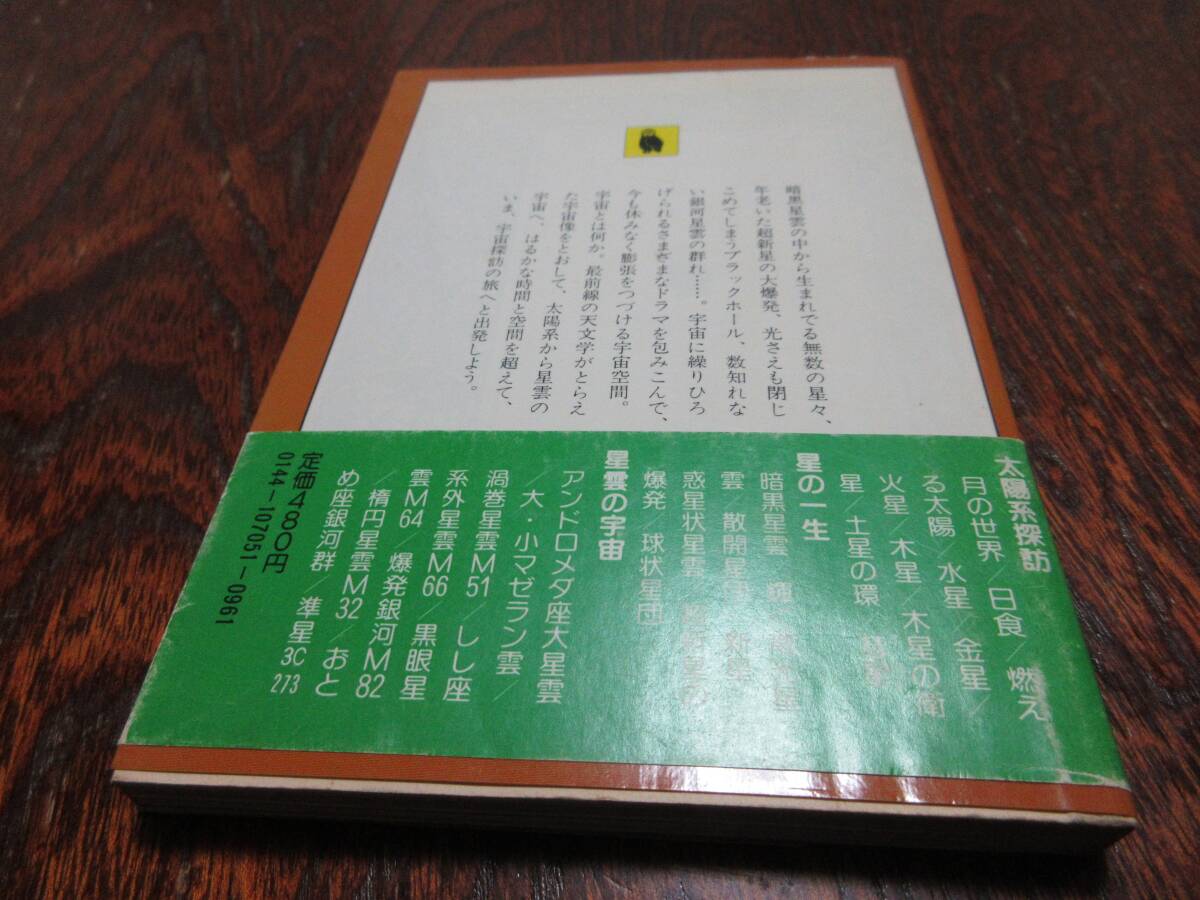 暗黒星雲の中から生まれてる無数の星々、
年老いた超新星の大爆発、光さえも閉じ
こめてしまうブラックホール、数知れな
い銀河星雲の群れ……。宇宙に繰りひろ
げられるさまざまなドラマを包みこんで、
今も休みなく膨張をつづける宇宙空間。
宇宙とは何か。最前線の天文学がとらえ
た宇宙像をとおして、太陽系から星雲の
宇宙へ、はるかな時間と空間を超えて、
いま、宇宙探訪の旅へと出発しよう。
太陽系探訪
月の世界/日食/燃え
る太陽/水星/金星/
火星/木星/木星の衛
星/土星の環
星の一生
暗黒星雲
雲 散開星団
惑星状星雲
爆発/球状星団
星雲の宇宙
アンドロメダ座大星雲
/大・小マゼラン雲/
渦巻星雲M51/しし座
系外星雲M66/黒眼星
雲M64/爆発銀河M82
/楕円星雲M32/おと
め座銀河群/準星3C
273
定価480円
0144-107051-0961